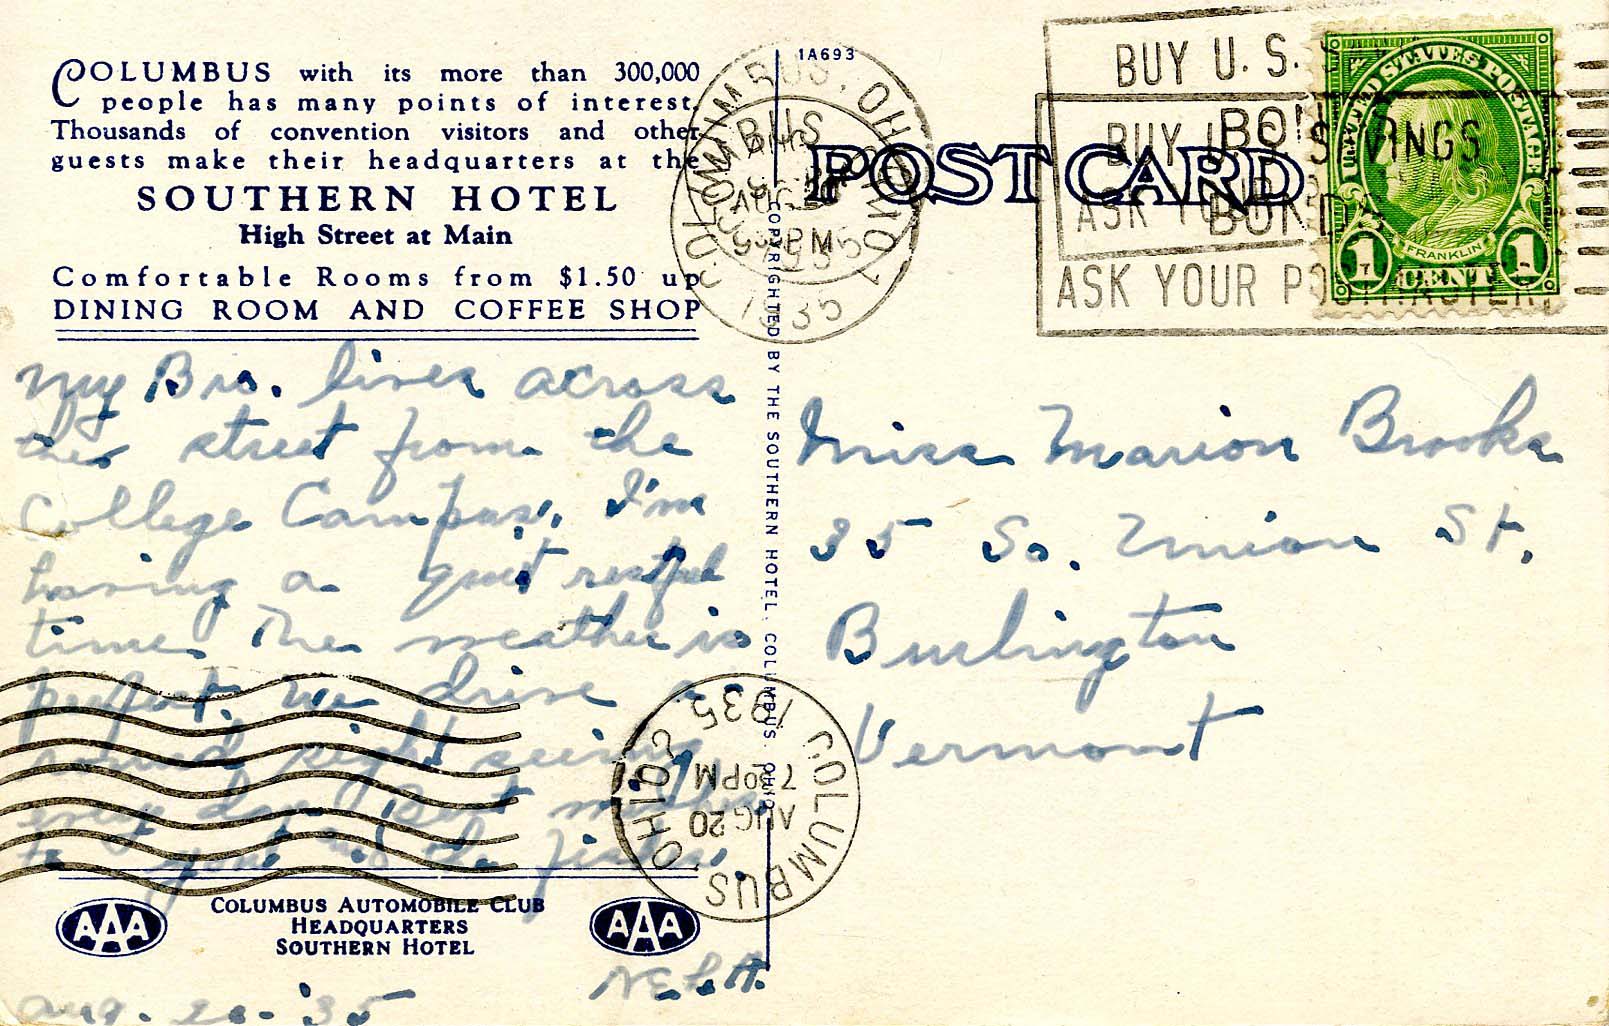 COLUMBUS with its more than 300,000
people has many points of interest.
Thousands of convention visitors and other
guests make their headquarters at the
SOUTHERN HOTEL
High Street at Main
Comfortable Rooms from $1.50 up
DINING ROOM AND COFFEE SHOP
My Bro. lives across
the street from the
College Campus. I'm
having a quiet restful
time. The weather is
perfect. We drive a
round sight seeing
every day. Best wishes
to you and the
COLUMBUS AUTOMOBILE CLUB
HEADQUARTERS
SOUTHERN HOTEL
AAA
AAA
Aug. 20 - '35
1A693
POST CARD
COPYRIGHTED BY THE SOUTHERN HOTEL, COLUMBUS, OHIO
COLUMBUS, OHIO
1935
BUY U.S.
BUY U.S. SAVINGS
BONDS
ASK YOUR
ASK YOUR POSTMASTER
UNITED STATES POSTAGE
FRANKLIN
1 CENT 1
Miss Marion Brooks
35 So. Union St.
Burlington
Vermont
COLUMBUS OHIO
AUG 20
7 30 PM
1935